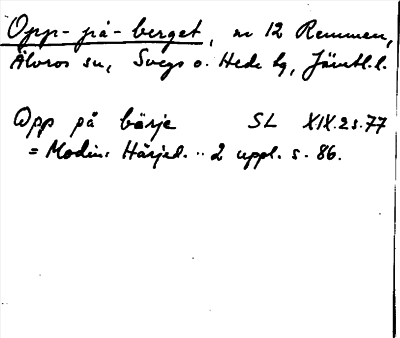 Opp-på-berget, nr 12 Remmen,
Älvros sn, Svegs o. Hede tg, Jämtl.l.
Opp på bärje SL XIX.2 s.77
= Modin: Härjed. .. 2 uppl. s. 86.